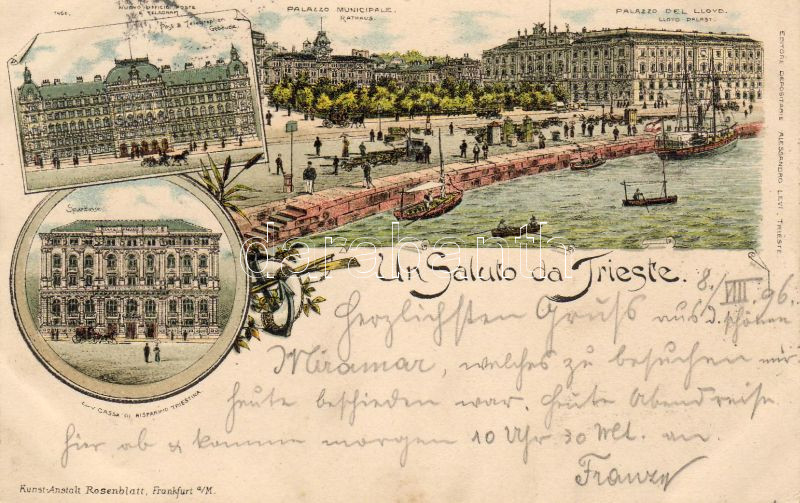 1406.
NUOVO UFFICIO POSTE
& TELEGRAFI
Post & Telegraphen
Gebäude.
PALAZZO MUNICIPALE.
RATHAUS.
PALAZZO DEL LLOYD.
LLOYD PALAST.
EDITORE DEPOSITARIE ALESSANDRO LEVI, TRIESTE
Sparkasse.
CASSA DI RISPARMIO TRIESTINA
darabanth.com
Un Saluto da Trieste.
8./VIII. 96.
Herzlichsten Gruss aus d. schönen
Miramar, welches zu besuchen mir
heute beschieden war. Heute Abend reise
hier ab & komme morgen 10 Uhr 30 Mt. an.
Franz
Kunst-Anstalt Rosenblatt, Frankfurt a/M.